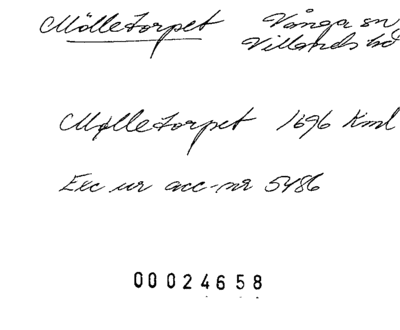 Mölletorpet Vånga sn
Villands hd
Mølletorpet 1696 Kml
Exc ur acc-nr 5486
00024658